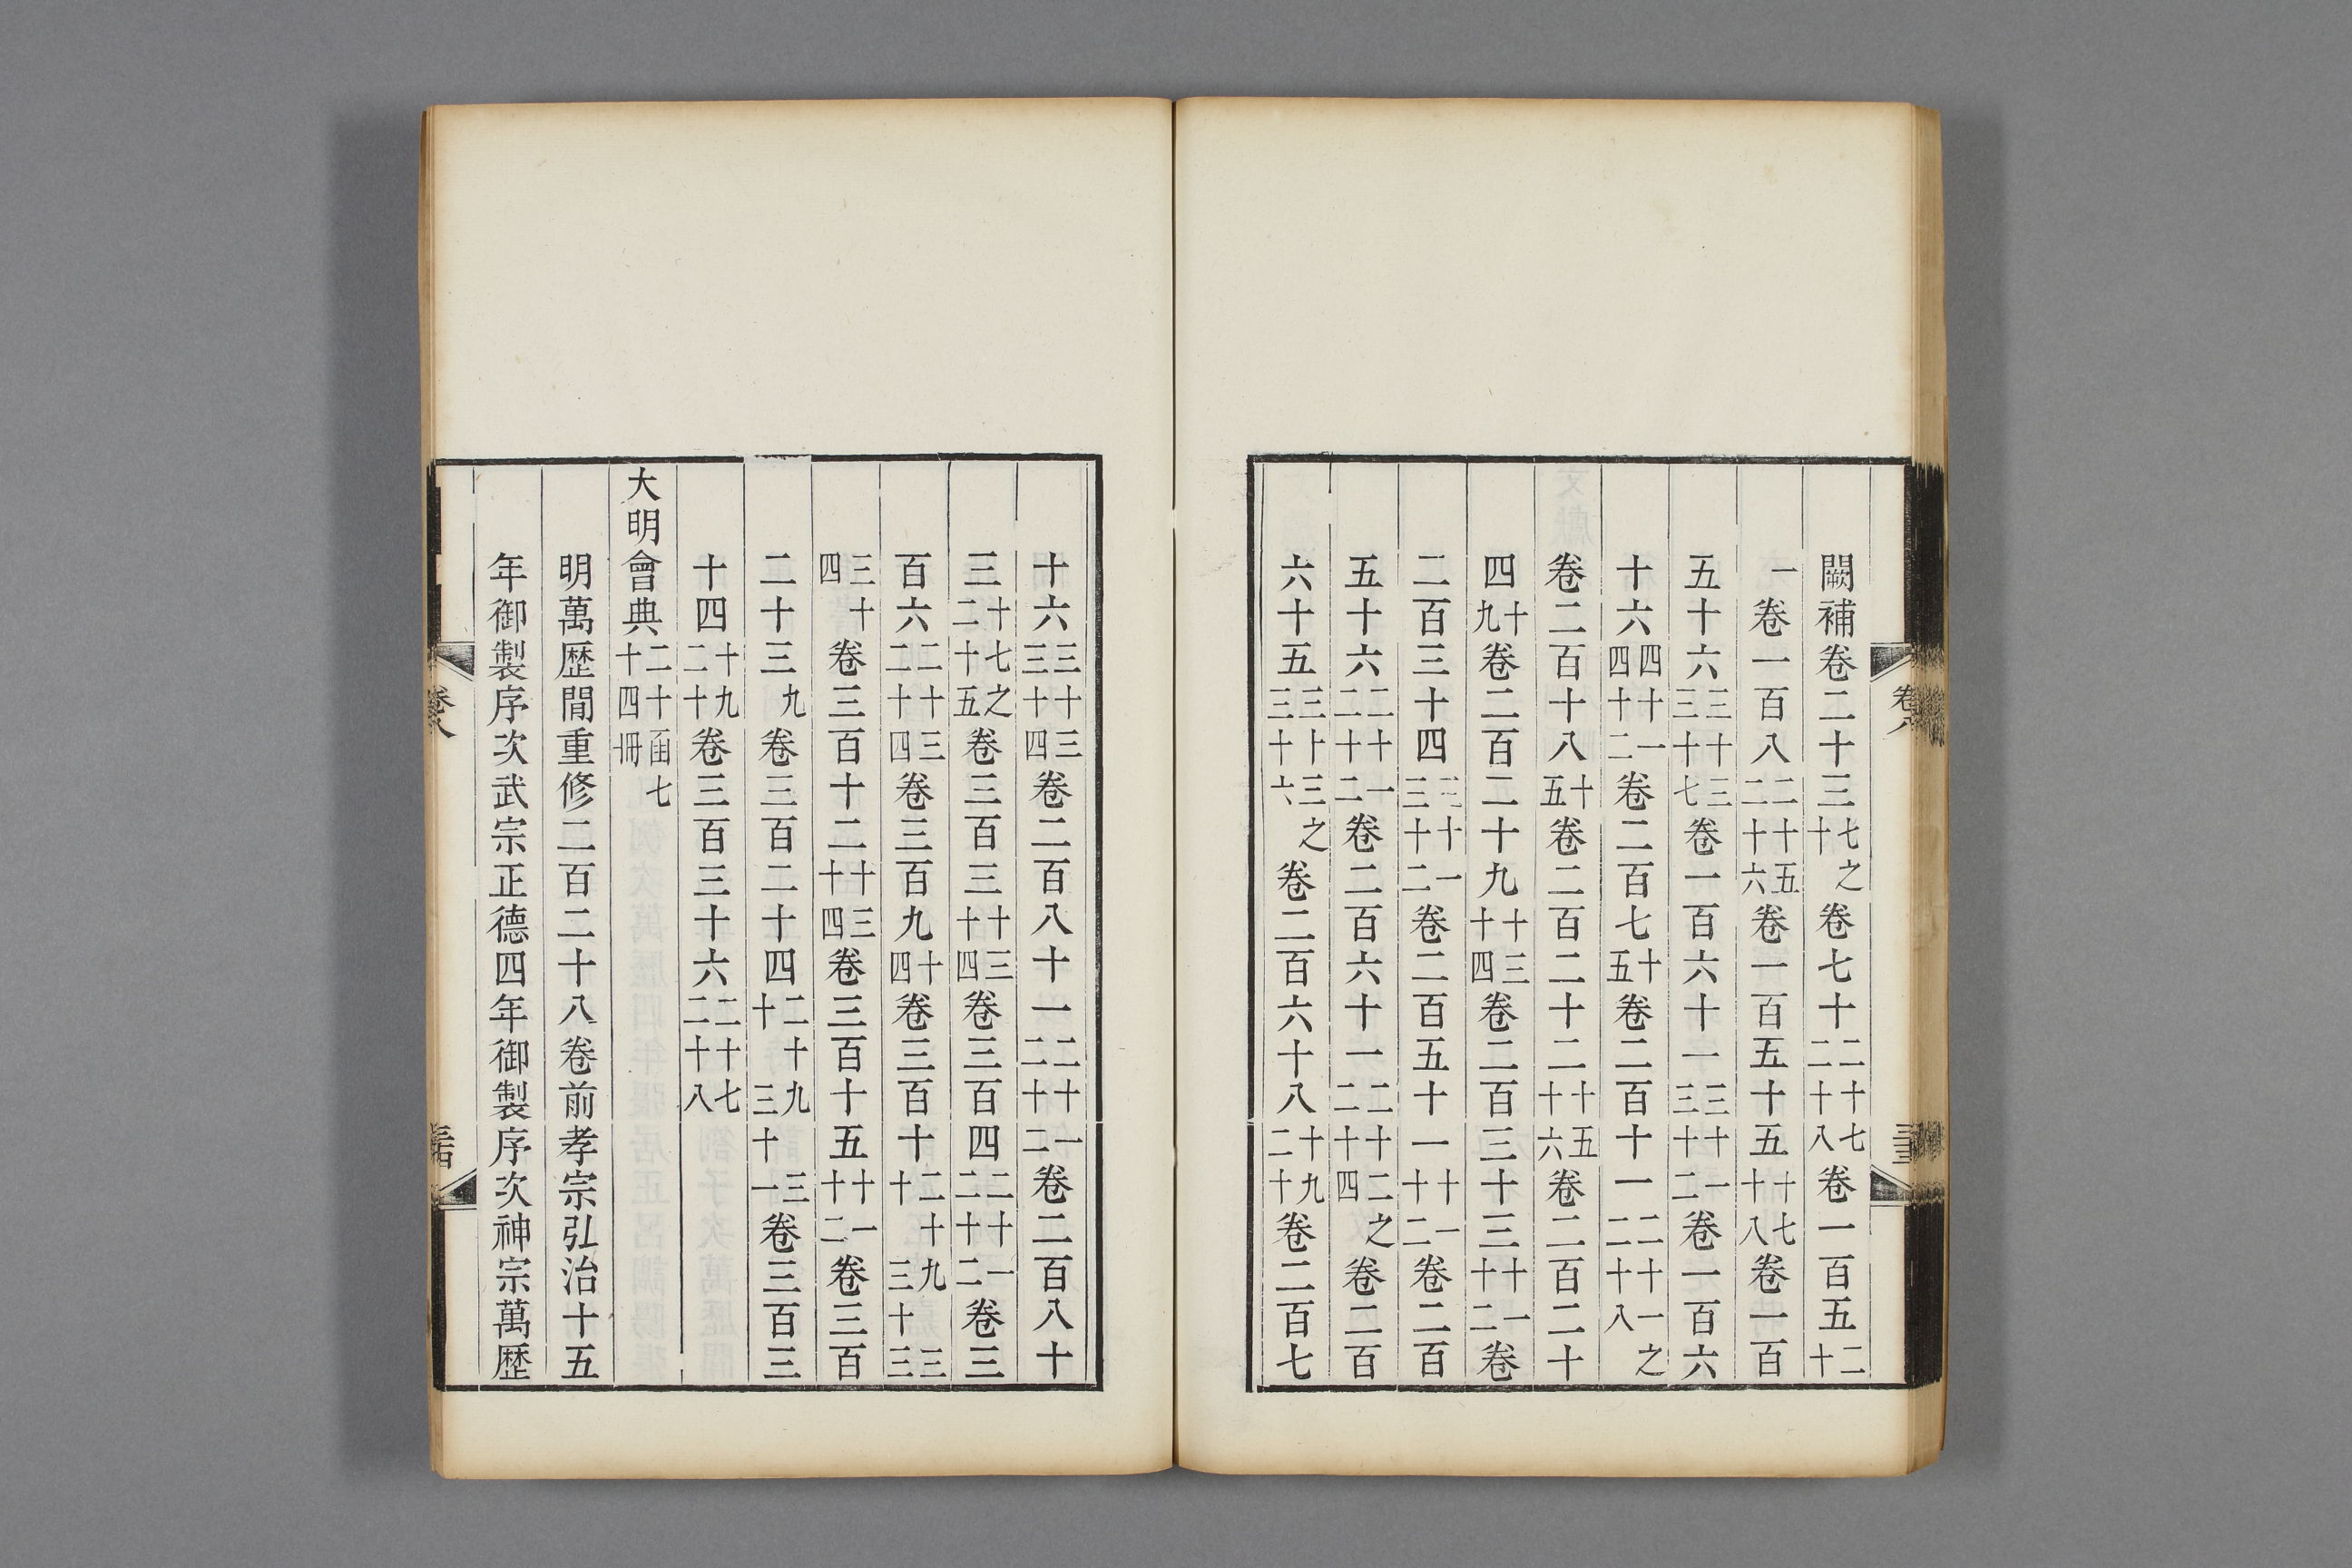 闕補卷二十三七之十卷七十二十七二十八卷一百五二十
一卷一百八二十五二十六卷一百五十五十七十八卷一百
五十六三十三三十七卷一百六十一三十一三十二卷一百六
十六四十一四十二卷二百七十五卷二百十一二十一之二十八
卷二百十八十五卷二百二十二十五十六卷二百二十
四十九卷二百二十九十三十四卷二百三十三十一十二卷
二百三十四三十一三十二卷二百五十一十一十二卷二百
五十六二十一二十二卷二百六十一二十二之二十四卷二百
六十五三十三之三十六卷二百六十八十九二十卷二百七
十六三十三三十四卷二百八十一二十一二十二卷二百八十
三十七之二十五卷三百三十三十四卷三百四二十一二十二卷三
百六二十三二十四卷三百九十四卷三百十二十九三十三十三
三十四卷三百十二十三十四卷三百十五十一十二卷三百
二十三九卷三百二十四二十九三十三十一卷三百三
十四十九二十卷三百三十六二十七二十八
大明會典二十函七十四冊
明萬歷間重修二百二十八卷前孝宗弘治十五
年御製序次武宗正德四年御製序次神宗萬歷
卷八